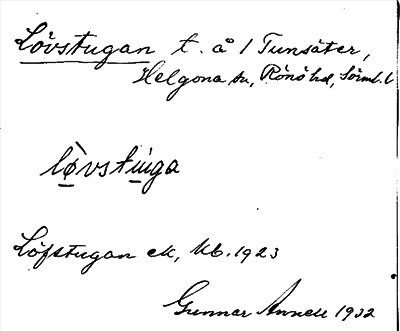 Lövstugan t. å 1 Tunsäter,
Helgona sn, Rönö hd, Sörml. l
lø̀vstuga
Löfstugan ek, kb. 1923
Gunnar Annell 1932